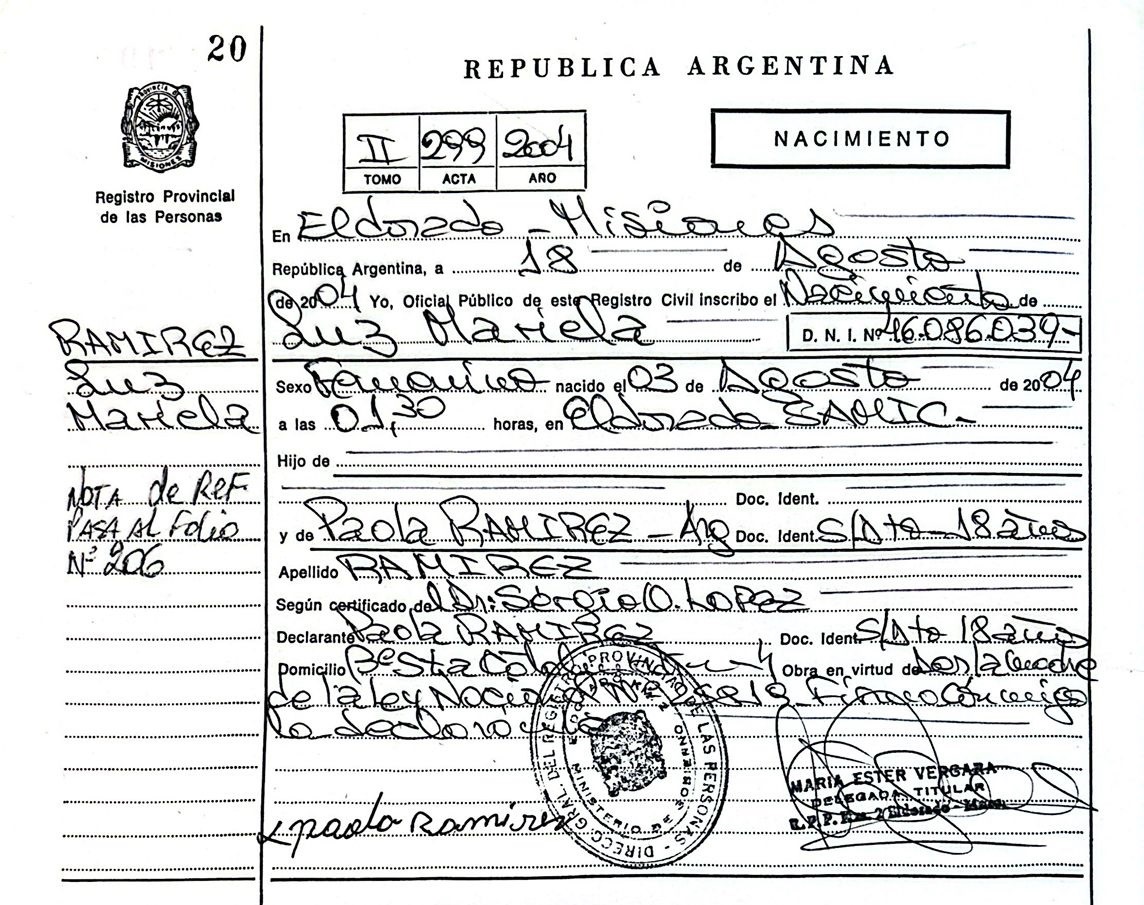 20
REPUBLICA ARGENTINA
PROVINCIA DE MISIONES
Registro Provincial
de las Personas
II 299 2004
TOMO ACTA AÑO
NACIMIENTO
En Eldorado - Misiones
República Argentina, a 18 de Agosto
de 2004 Yo, Oficial Público de este Registro Civil inscribo el Nacimiento de
Luz Mariela D. N. I. Nº 46.086.039-
RAMIREZ
Luz
Mariela
Sexo Femenino nacido el 03 de Agosto de 2004
a las 01,30 horas, en Eldorado SAMIC-
Hijo de
Doc. Ident.
NOTA de REF
PASA AL Folio
Nº 206
y de Paola RAMIREZ - Arg Doc. Ident. S/Dto - 18 años
Apellido RAMIREZ
Según certificado del Dr: Sergio O. LOPEZ
Declarante Paola RAMIREZ, Doc. Ident. S/Dto 18 años
Domicilio Obra en virtud de ser la madre
de la ley Nacional Firma Conmigo
la declarante
DIRECC. GRAL. DEL REGISTRO PROVINCIAL DE LAS PERSONAS
MINISTERIO DE GOBIERNO
ELDORADO KM 2
MARIA ESTER VERGARA
DELEGADA TITULAR
R.P.P. Km. 2 Eldorado - Mnes.
x paola Ramirez